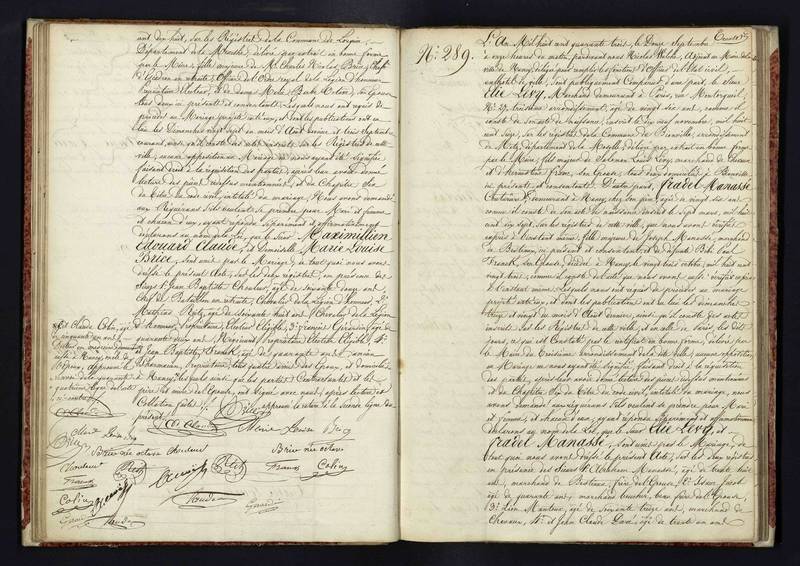 ont dix huit, sur les Régistres de la Commune de
Département de la Meurthe, délivré par extrait en bonne forme
par le Maire, fils majeur de M. Charles Nicolas Brice, Chef
d'Escadron en retraite, Officier de l'Ordre royal de la Légion d'honneur
propriétaire Electeur, et de Dame Colin, son Epouse
tous deux ici présents et consentants. Lesquels nous ont requis de
procéder au Mariage projeté entr'eux, et dont les publications ont eu
lieu les Dimanches vingt sept du mois d'Août dernier et trois Septembre
courant, ainsi qu'il conste des actes inscrits sur les Régistres de cette
ville, aucune opposition au Mariage ne nous ayant été signifiée
faisant droit à la réquisition des parties, après leur avoir donné
lecture des pièces ci-dessus mentionnées, et du Chapitre Six
du Code civil, intitulé du mariage. Nous avons demandé
aux Requérans s'ils veulent se prendre pour Mari et femme
et chacun d'eux ayant répondu séparément et affirmativement
déclarons au nom de la loi, que le sieur Maximillien
Edouard Claude, et Demoiselle Marie Louise
Brice, sont unis par le Mariage, de tout quoi nous avons
dressé le présent Acte, sur les deux régistres, en présence des
Sieurs 1° Jean Baptiste Chevaleur, âgé de soixante douze ans
Chef de Bataillon en retraite, Chevalier de la Légion d'honneur, 2°
Mathias âgé de soixante huit ans, Chevalier de la Légion
d'honneur, propriétaire, Electeur Eligible, 3° François
quarante deux ans, Négociant, propriétaire Electeur Eligible 4°
et Jean Baptiste âgé de quarante ans, ancien
Pharmacien, propriétaire, tous quatre amis des Epoux, et domiciliés
à Nancy, lesquels ainsi que les parties Contractantes et les
père et mère de l'Epouse, ont Signé avec nous, après lecture et
Collation faites
présent
et Claude Colin, âgé
de cinquante un ans
Docteur en médecine domicilié
à Nancy, oncle de
l'Epouse
Claude
Brice née octave
Brice
Marie Louise Brice
Colin
N° 289.
L'An Mil huit cent quarante trois, le Douze Septembre
à onze heures du matin, pardevant nous Nicolas Adjoint au Maire de la
ville de Nancy, délégué pour remplir les fonctions d'Officier de l'Etat civil
de ville, sont publiquement Comparus d'une part, le Sieur
Elie Levy, Marchand demeurant à Paris, rue Montorgueil,
N° 27, troisième arrondissement, âgé de vingt six ans, comme il
conste de son acte de naissance, inscrit le dix neuf novembre, mil huit
cent seize, sur les régistres de la Commune de Bionville, arrondissement
de Metz, département de la Moselle, délivré par extrait en bonne forme
par le Maire, fils majeur de Salomon Louis Levy, marchand de Chevaux
et d'Ernestine son Epouse, tous deux domiciliés à Bionville
ici présents et consentants. D'autre part, Fradel Manassé
Couturière, demeurant à Nancy, chez son père, âgée de vingt six ans
comme il conste de son acte de naissance inscrit le sept mars, mil huit
cent dix sept, sur les régistres de cette ville, que nous avons vérifié
copié à l'instant même, fille majeure de Joseph Manassé, marchand
de Bestiaux, ici présent et consentant, et de défunte
Franck, son Epouse, décédée à Nancy le vingt trois octobre, mil huit cent
vingt trois, comme ce régistre de cette ville que nous avons aussi vérifié copié
à l'instant même. Lesquels nous ont requis de procéder au mariage
projeté entr'eux, et dont les publications ont eu lieu les dimanches
treize et vingt du mois d'Août dernier, ainsi qu'il conste des actes
inscrits sur les Régistres de cette ville, et en celle de Paris, les dits
jours, ce qui est Constaté par le certificat en bonne forme, délivré par
le Maire du troisième arrondissement de la dite ville, aucune opposition
au Mariage ne nous ayant été signifiée, faisant droit à la réquisition
des parties, après leur avoir donné lecture des pièces ci-dessus mentionnées
et du Chapitre Six du Code civil, intitulé du mariage, nous
avons demandé aux Requérans s'ils veulent se prendre pour Mari
et femme, et chacun d'eux, ayant répondu séparément et affirmativement
déclarons au nom de la Loi, que le sieur Elie Levy, et
Fradel Manassé, sont unis par le Mariage, de
tout quoi nous avons dressé le présent Acte, sur les deux régistres
en présence des Sieurs 1° Abraham Manassé, âgé de trente huit
ans, marchand de Bestiaux, frère de l'Epouse, 2° Isaac Jacob
âgé de quarante ans, marchand boucher, beau frère de l'Epouse,
3° Léon Manteau, âgé de soixante treize ans, marchand de
Chevaux, 4° et Jean Claude âgé de trente un ans